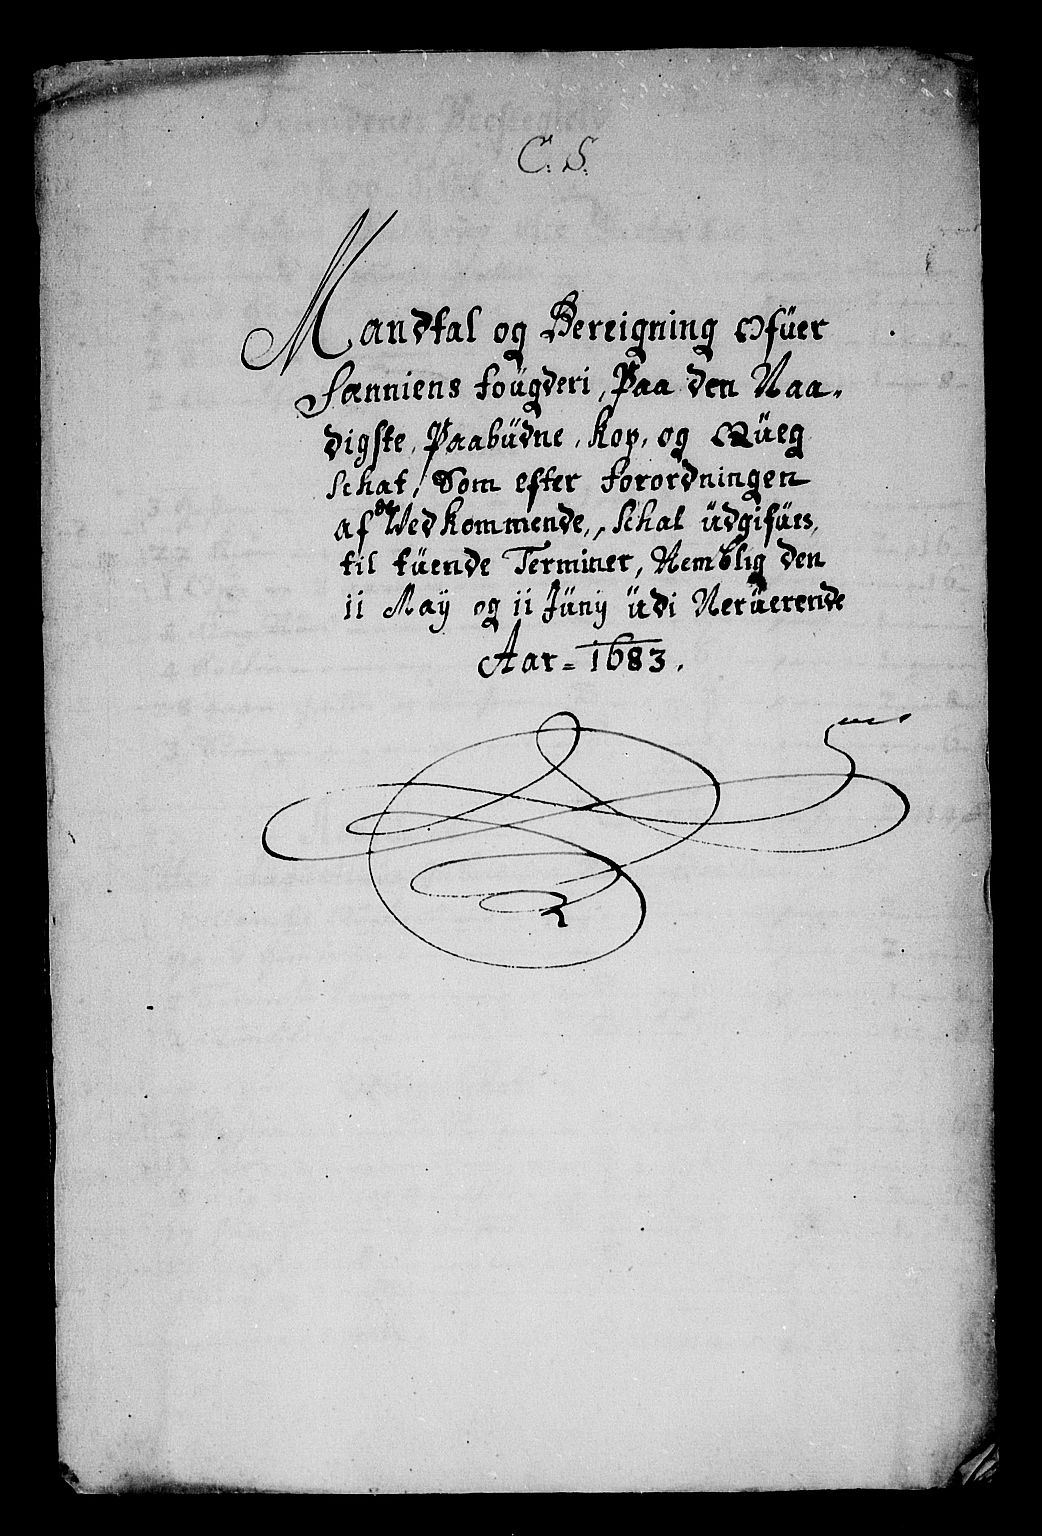 C. S.
Mandtal og Bereigning Ofüer
Senniens fougderi, Paa den Naa-
digste, Paabüdne, Kop, og Qüeg
schat, Som efter forordningen
af de Wedkommende, schal üdgifües,
til tüende Terminer, Nemblig den
11 Maÿ og 11 Jünÿ üdi Nerüerende
Aar = 1683.